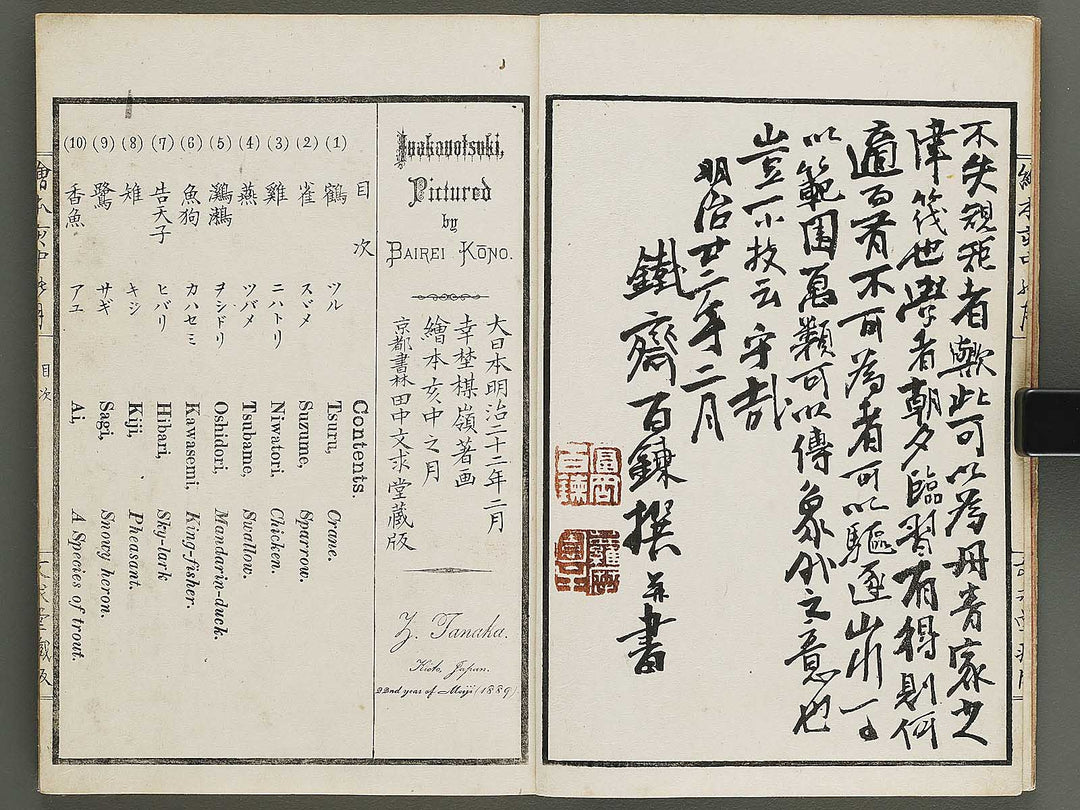 不失規矩者歟此可以為丹青家之
津筏也學者朝夕臨習有得則何
適 不可為者可以驅逐山川
以範圍萬類可以傳象外之意也
豈小技云乎哉
明治廿二年二月
鐵齋百鍊撰并書
Inakanotsuki,
Pictured
by
BAIREI KŌNO.
大日本明治二十二年二月
幸埜楳嶺著画
繪本亥中之月
京都書林田中文求堂蔵版
Z. Tanaka.
Kioto, Japan.
22nd year of Meiji (1889)
目次
Contents.
(1) 鶴 ツル Tsuru, Crane.
(2) 雀 スヾメ Suzume, Sparrow.
(3) 雞 ニハトリ Niwatori, Chicken.
(4) 燕 ツバメ Tsubame, Swallow.
(5) 鸂鶒 ヲシドリ Oshidori, Mandarin-duck.
(6) 魚狗 カハセミ Kawasemi, King-fisher.
(7) 告天子 ヒバリ Hibari, Sky-lark
(8) 雉 キジ Kiji, Pheasant.
(9) 鷺 サギ Sagi, Snowy heron.
(10) 香魚 アユ Ai, A Species of trout.
目次